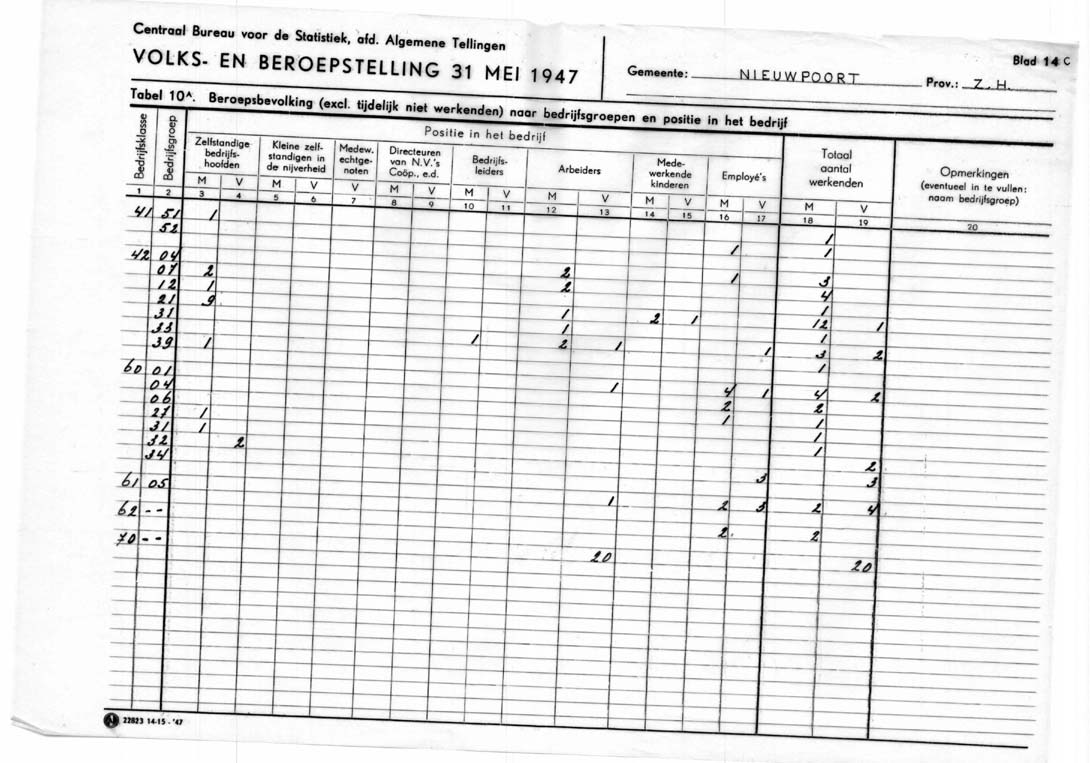 Centraal Bureau voor de Statistiek, afd. Algemene Tellingen
VOLKS- EN BEROEPSTELLING 31 MEI 1947
Gemeente: NIEUWPOORT Prov.: Z.H.
Blad 14 C
Tabel 10A. Beroepsbevolking (excl. tijdelijk niet werkenden) naar bedrijfsgroepen en positie in het bedrijf
Bedrijfsklasse
Bedrijfsgroep
Positie in het bedrijf
Zelfstandige
bedrijfs-
hoofden
Kleine zelf-
standigen in
de nijverheid
Medew.
echtge-
noten
Directeuren
van N.V.'s
Coöp., e.d.
Bedrijfs-
leiders
Arbeiders
Mede-
werkende
kinderen
Employé's
Totaal
aantal
werkenden
Opmerkingen
(eventueel in te vullen:
naam bedrijfsgroep)
M V M V V M V M V M V M V M V M V
1 2 3 4 5 6 7 8 9 10 11 12 13 14 15 16 17 18 19 20
41 51 1 1
52 1 1
42 04 2 1 3
07 2 2 4
12 1 1
21 9 1 2 1 12 1
31 1 1
33 1 2 1 1 3 2
39 1 1
60 01 1 4 1 4 2
04 2 2
06 1 1
27 1 1
31 1 1
32 2 2
34 3 3
61 05 1 2 3 2 4
62 -- 2 2
70 -- 20 20
22823 14-15 - '47